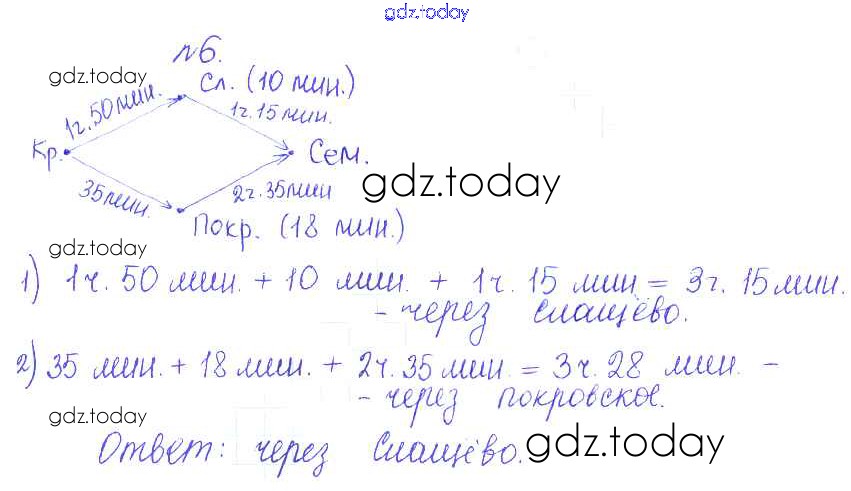 gdz.today
№6.
gdz.today
Сл. (10 мин.)
1ч.50мин.
1ч.15мин.
Кр.
Сем.
gdz.today
35мин.
2ч.35мин
gdz.today
Покр. (18 мин.)
gdz.today
1) 1ч. 50 мин. + 10 мин. + 1ч. 15 мин = 3ч. 15мин.
- через Слащёво.
2) 35 мин. + 18 мин. + 2ч. 35 мин. = 3ч. 28 мин. -
- через Покровское.
gdz.today
Ответ: через Слащёво.
gdz.today